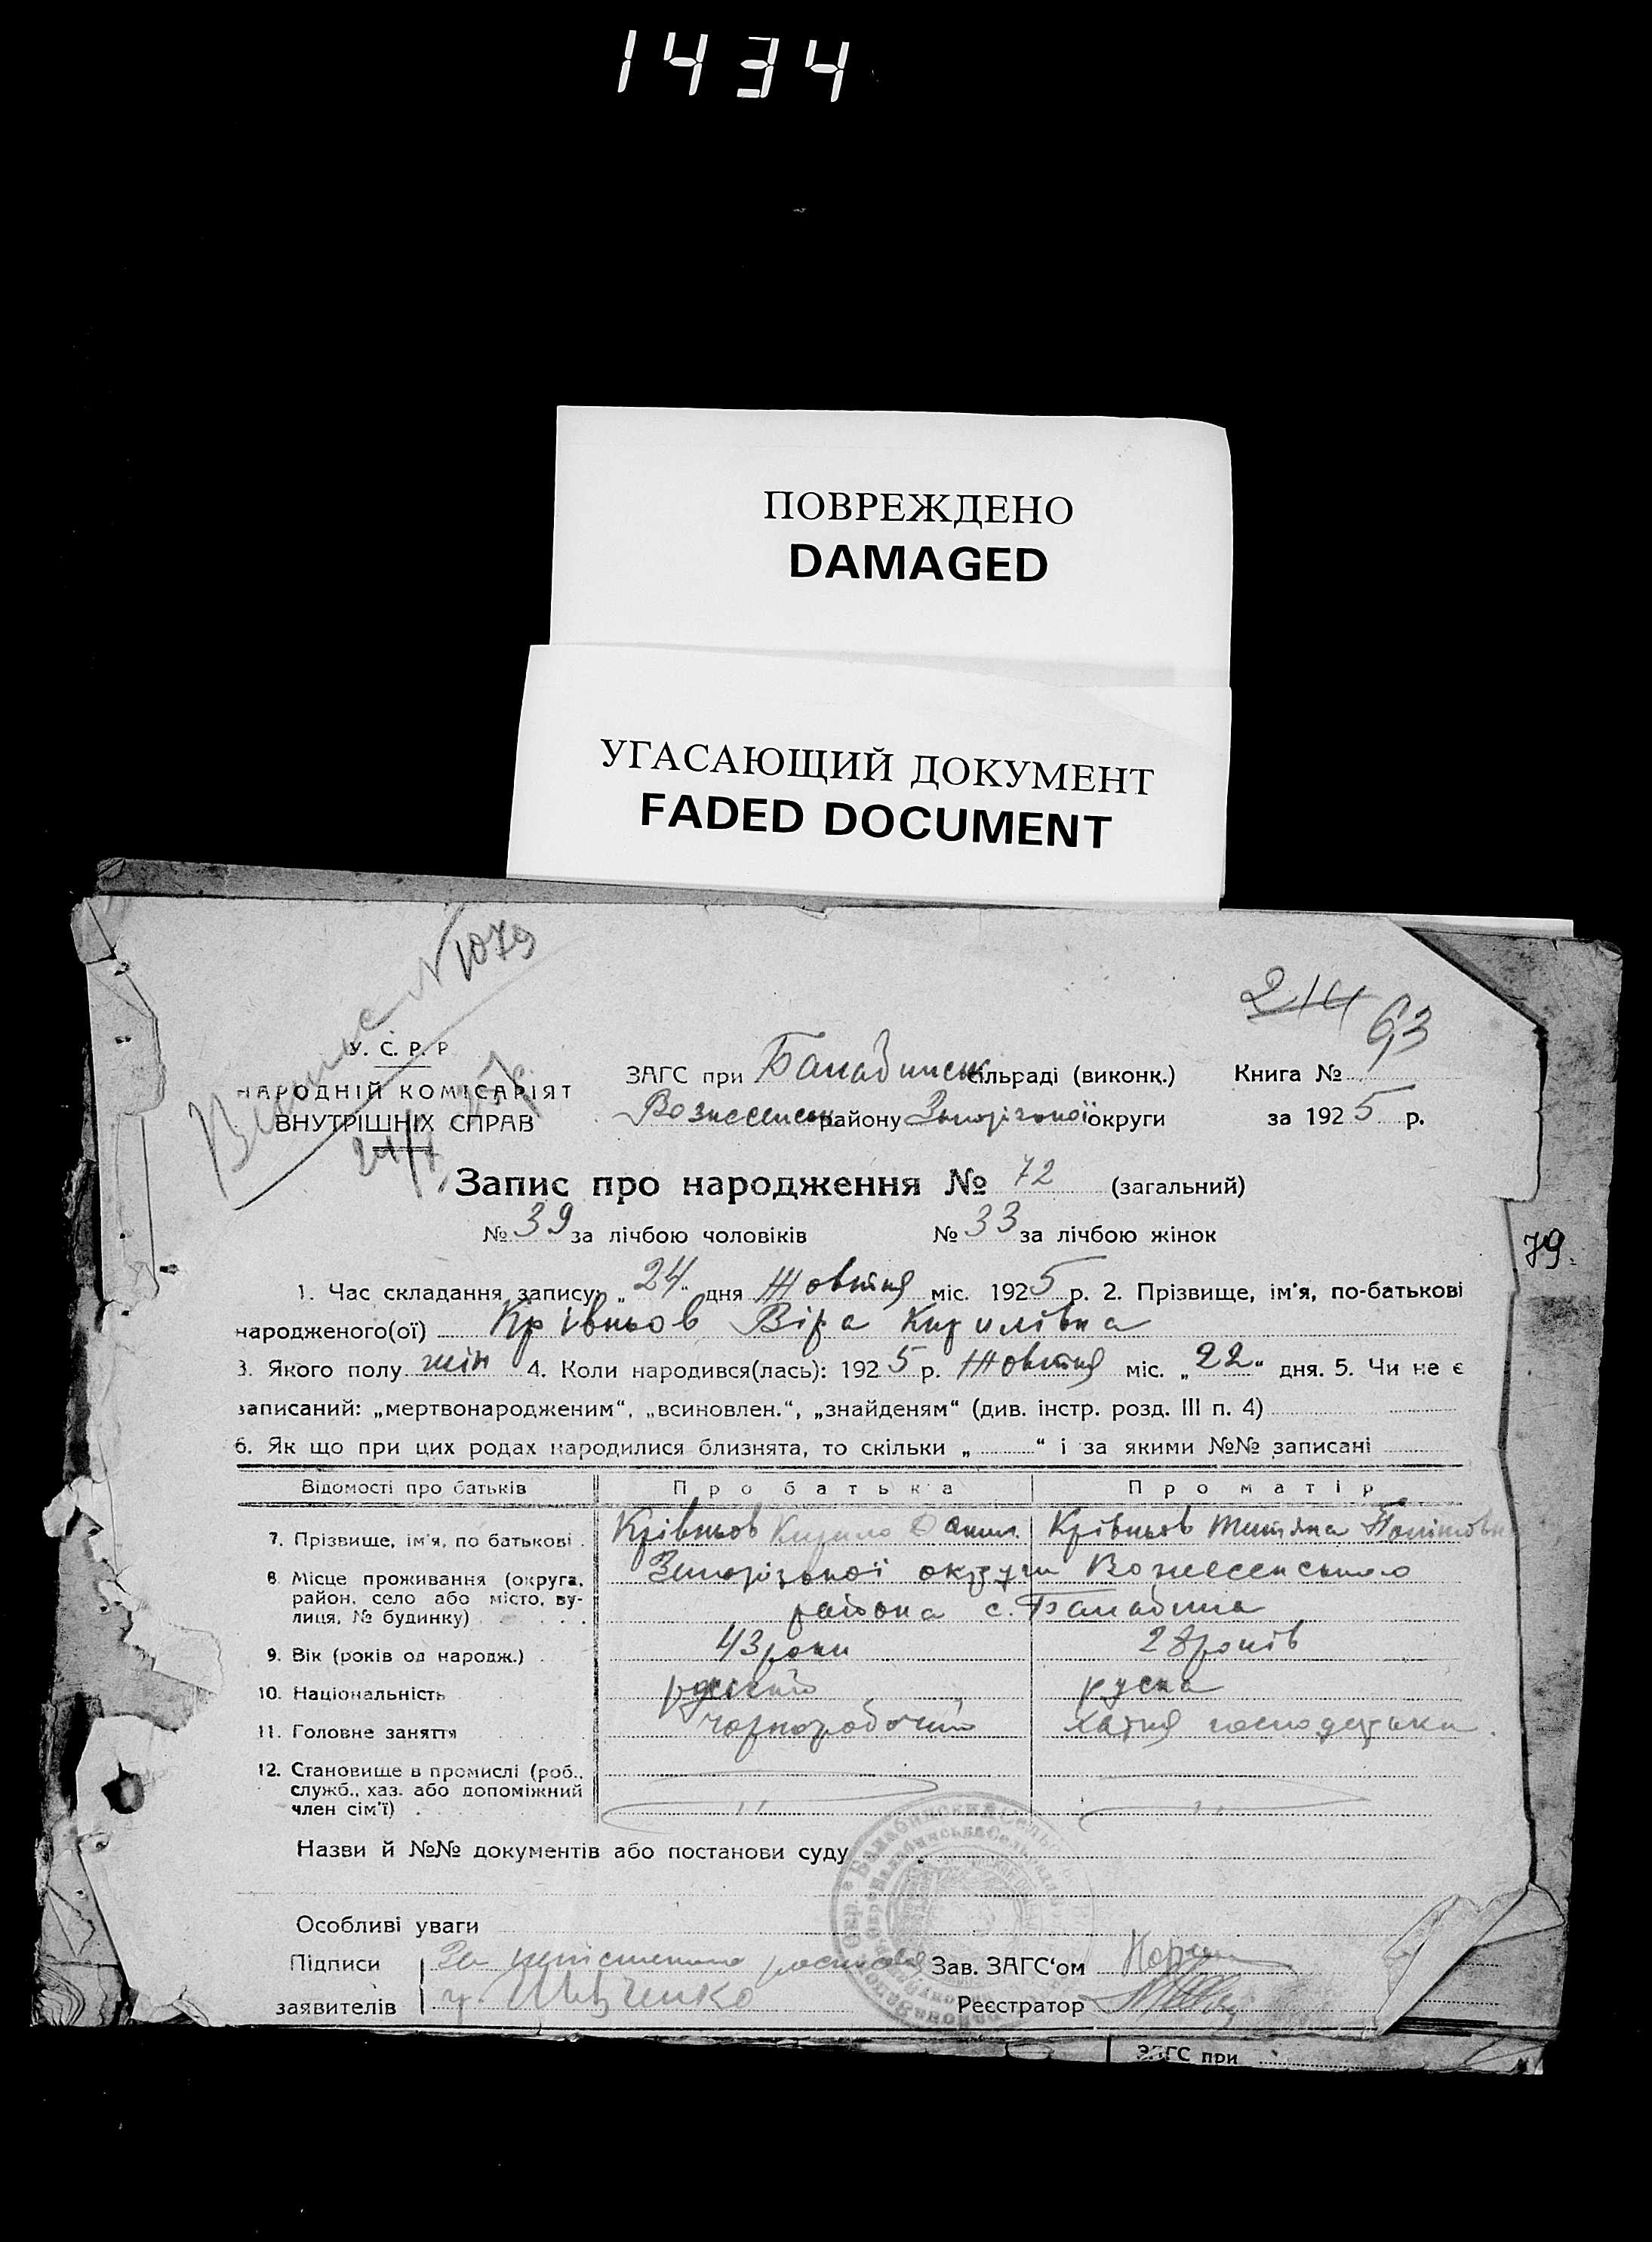 1434
ПОВРЕЖДЕНО
DAMAGED
УГАСАЮЩИЙ ДОКУМЕНТ
FADED DOCUMENT
N 1079
214 63
У. С. Р. Р
НАРОДНІЙ КОМІСАРІЯТ
ВНУТРІШНІХ СПРАВ
ЗАГС при Балабинськ сільраді (виконк.) Книга №
Вознесенськ району Запорізької округи за 1925 р.
Запис про народження № 72 (загальний)
№ 39 за лічбою чоловіків № 33 за лічбою жінок
79.
1. Час складання запису: „24“ дня Жовтня міс. 1925 р. 2. Прізвище, ім'я, по-батькові
народженого(ої) Крівньов Віра Кирилівна
3. Якого полу жін 4. Коли народився(лась): 1925 р. Жовтня міс. „22“ дня. 5. Чи не є
записаний: „мертвонародженим“, „всиновлен.“, „знайденям“ (див. інстр. розд. III п. 4)
6. Як що при цих родах народилися близнята, то скільки „ “ і за якими №№ записані
Відомості про батьків Про батька Про матір
7. Прізвище, ім'я, по батькові Крівньов Кирило Крівньов Титяна
8. Місце проживання (округа, район, село або місто, ву-
лиця, № будинку) Запорізької округи Вознесенського
района с. Балабина
9. Вік (років од народж.) 43 роки 28 років
10. Національність руський руска
11. Головне заняття чорноробочий хатня господарька.
12. Становище в промислі (роб.,
служб., хаз. або допоміжний
член сім'ї)
Назви й №№ документів або постанови суду
Особливі уваги
Підписи За Зав. ЗАГС'ом
заявителів Шевченко Реєстратор
ЗАГС при